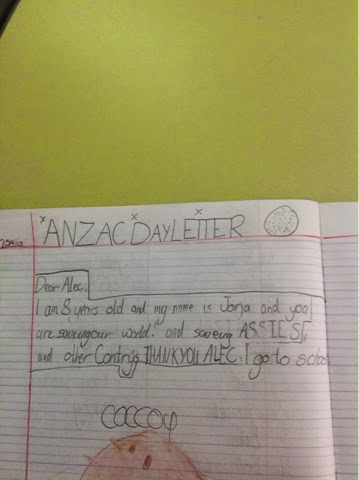 ANZAC DAY LETTER
Dear Alec,
I am 8 years old and my name is Jorja and you
are saveing our world! and saveing ASSIES,
and other Contrys THANKYOU ALEC. I go to school